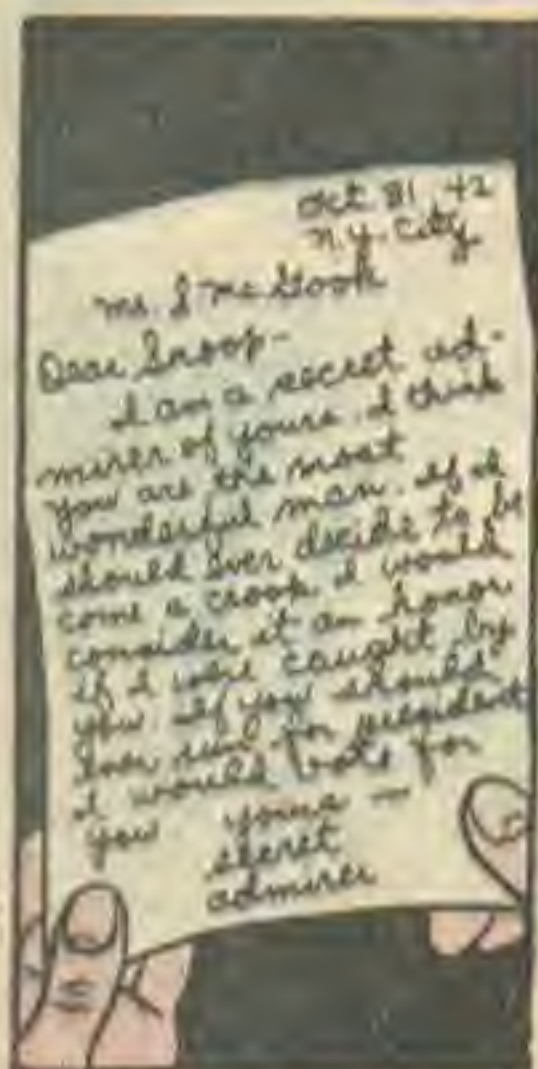 Oct 31 42
N.Y. City
Mr. S McGook
Dear Snoop-
I am a secret ad-
mirer of yours. I think
you are the most
wonderful man. If I
should ever decide to be
come a crook I would
consider it an honor
if I were caught by
you. If you should
ever run for president
I would vote for
you. yours —
secret
admirer